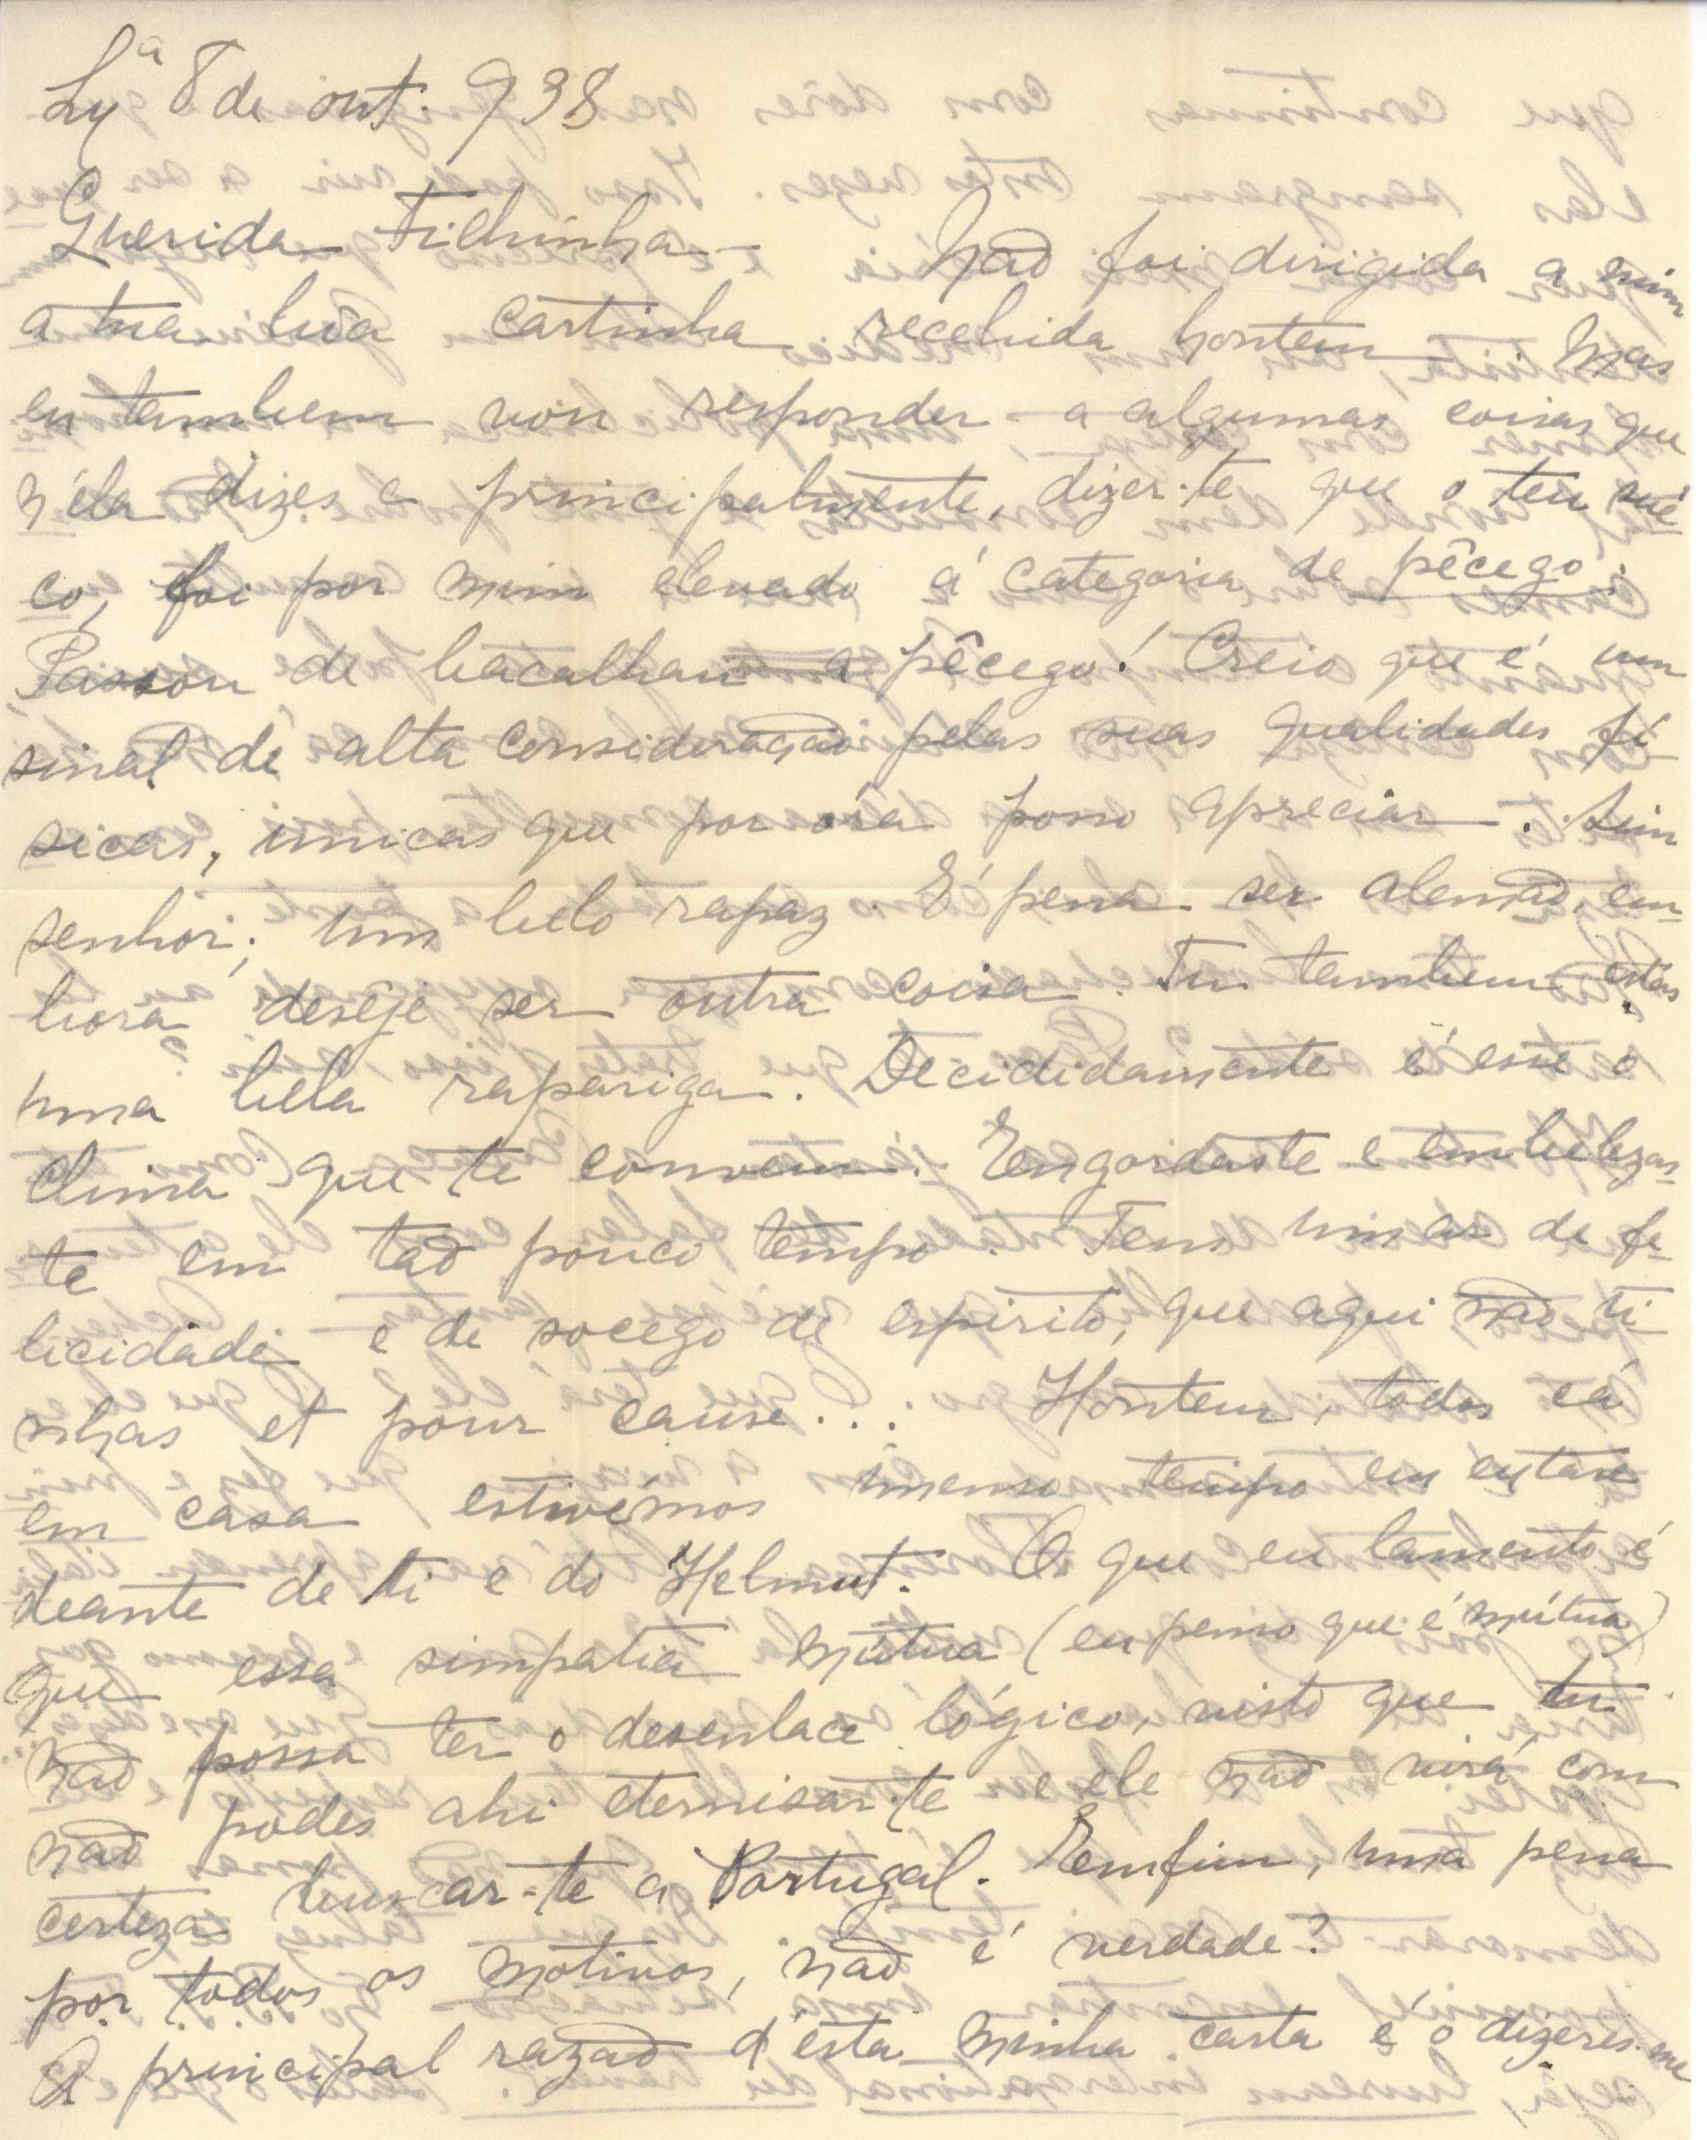 Lxª 8 de out. 938
Querida Filhinha — Não foi dirigida a mim
a tua bôa cartinha recebida hontem. Mas
eu tambem vou responder a algumas coisas que
n'éla dizes e principalmente, dizer-te que o teu sué-
co, foi por mim elevado á categoria de pêcego.
Passou de bacalhau a pêcego! Creio que é um
sinal de alta consideração pelas suas qualidades fi-
sicas, unicas que por óra posso apreciar. Sim
senhor; um belo rapaz. É pena ser alemão, em-
bora deseje ser outra coisa. Tu tambem estás
uma bela rapariga. Decididamente é esse o
clima que te convem. Engordaste e embelezas-
te em tão pouco tempo. Tens um ar de fe-
licidade e de socego de espirito, que aqui não ti-
nhas et pour cause... Hontem, todos cá
em casa estivémos imenso tempo em extase
deante de ti e do Helmut. O que eu lamento é
que essa simpatia mútua (eu penso que é mútua)
não possa ter o desenlace lógico, visto que tu
não podes ahi eternisar-te e ele não virá com
certeza buscar-te a Portugal. Emfim, uma pena
por todos os motivos, não é verdade?
A principal razão d'esta minha carta é o dizeres-me